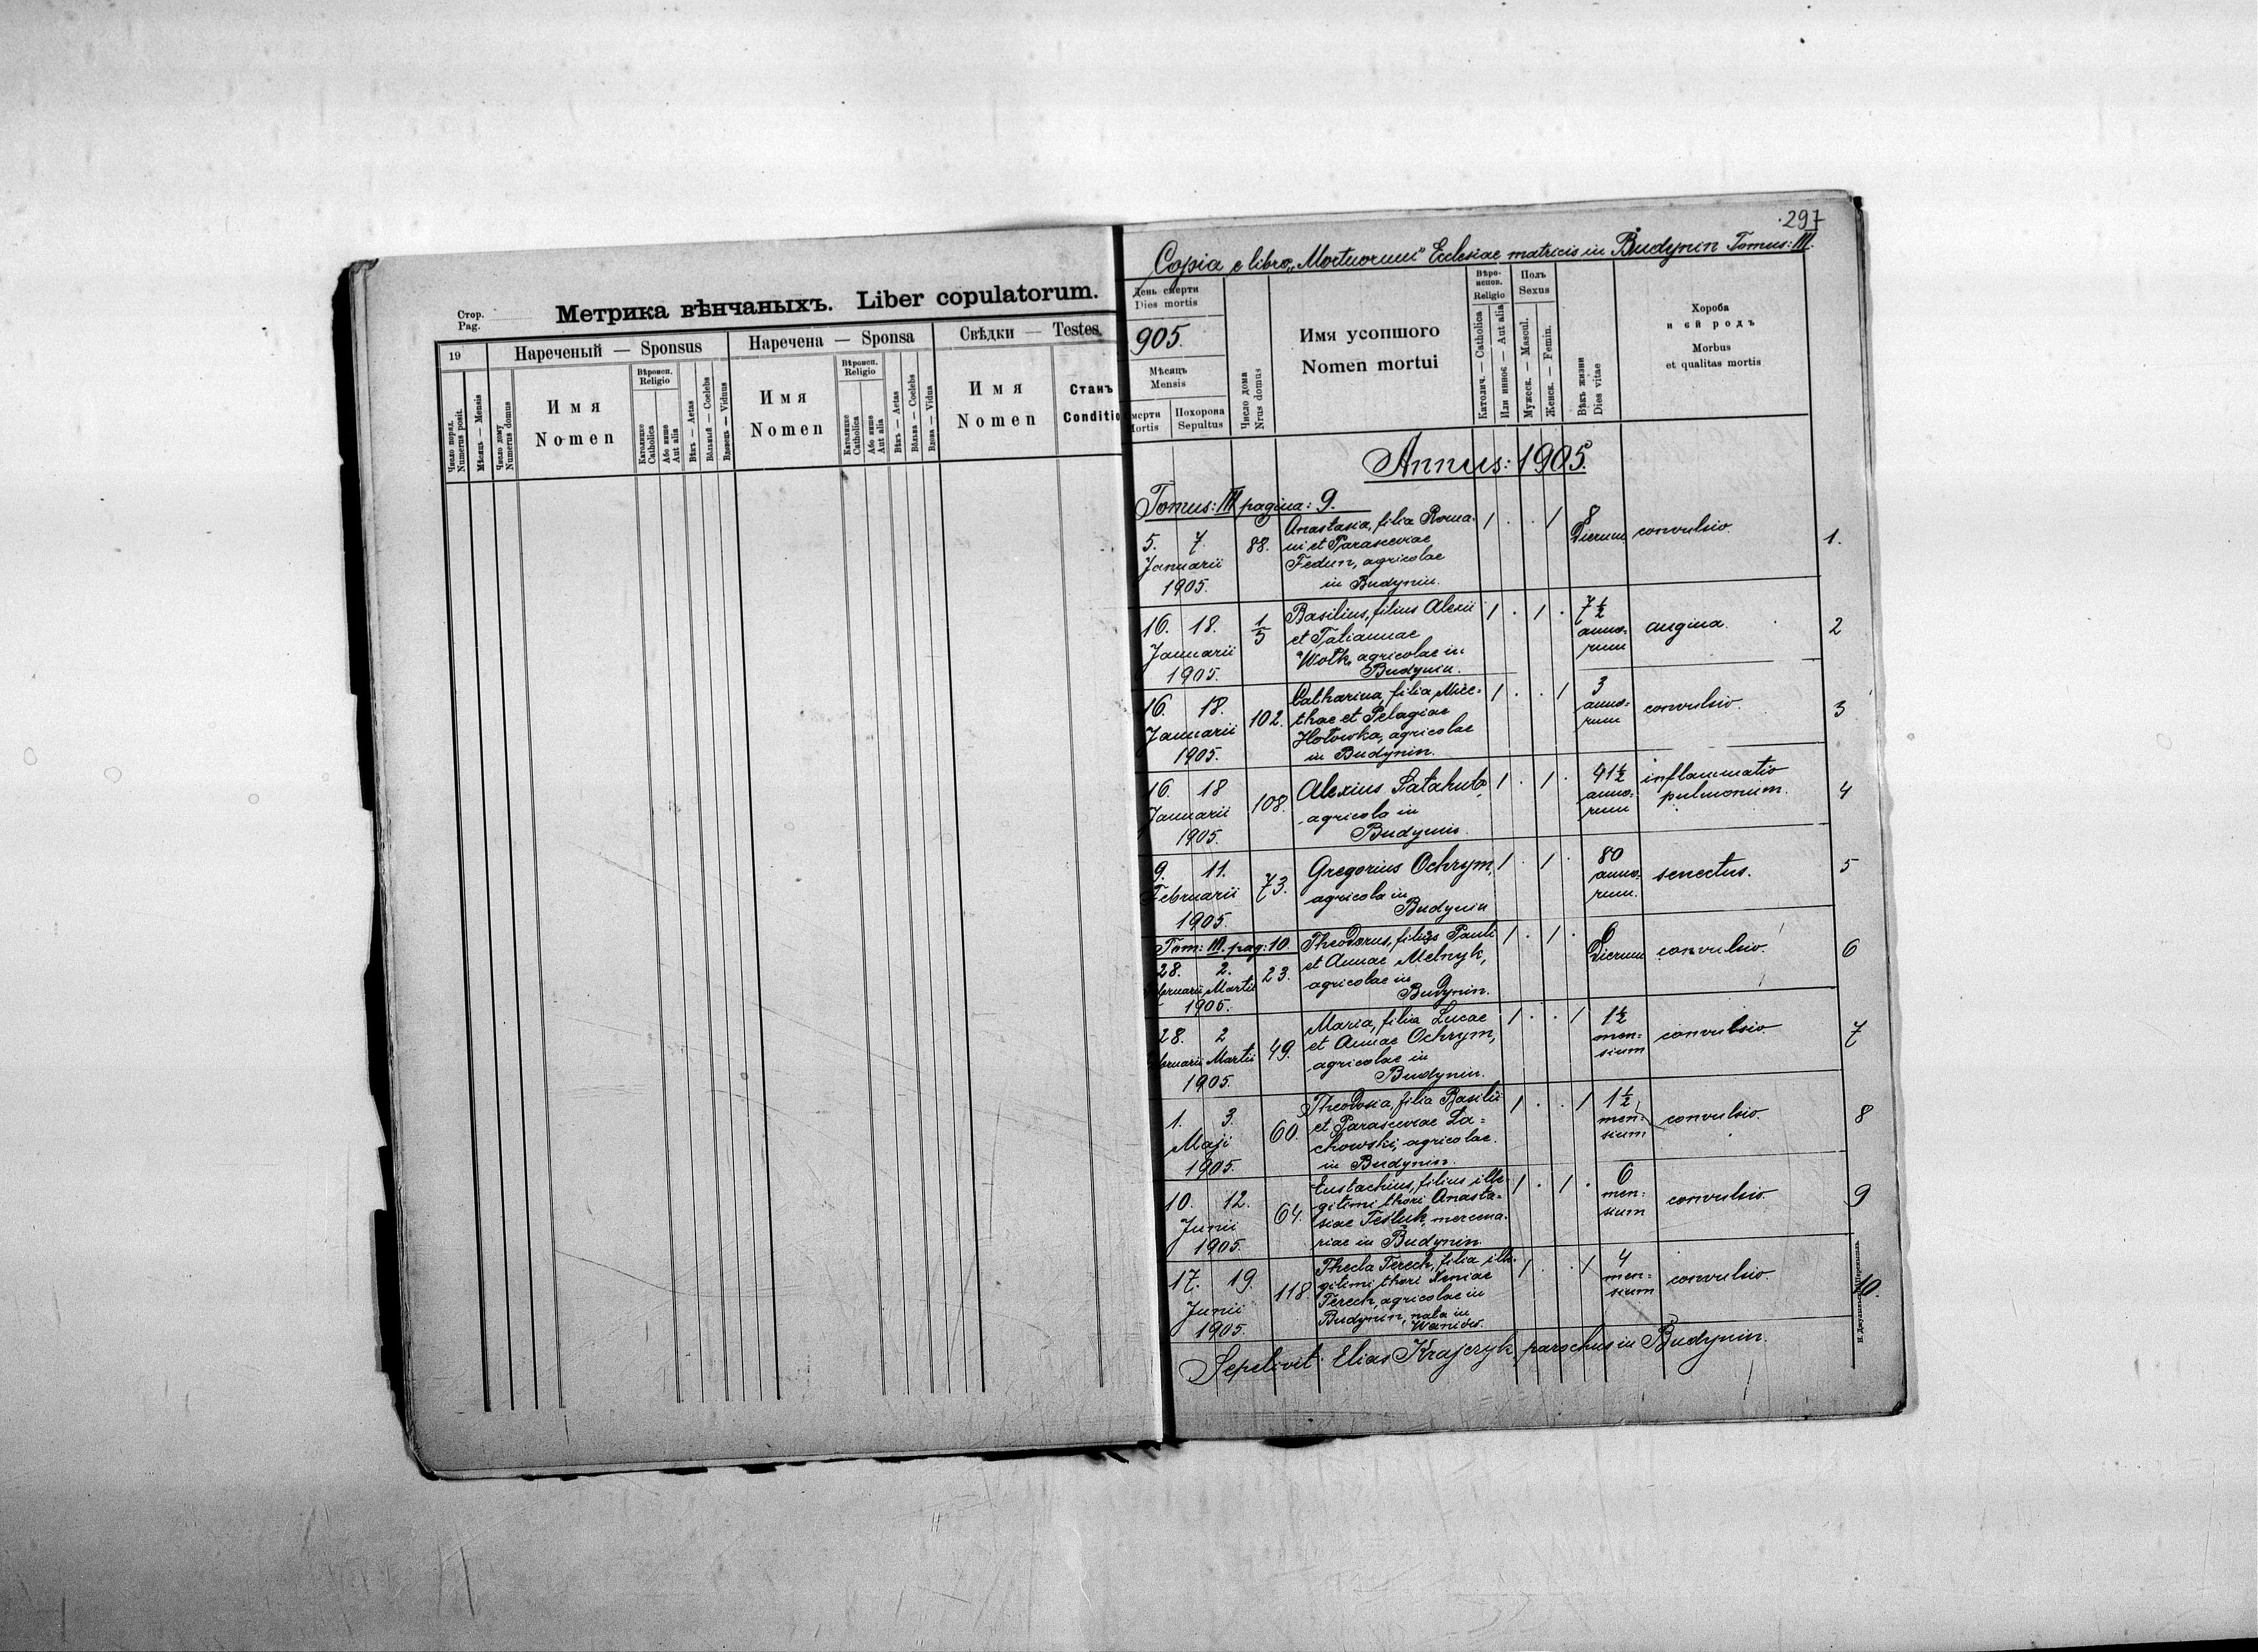 Стор.
Pag.
Метрика вѣнчаныхъ. Liber copulatorum.
19
Нареченый — Sponsus
Наречена — Sponsa
Свѣдки — Testes
Число поряд.
Numerus posit.
Мѣсяць — Mensis
Число дому
Numerus domus
Имя
Nomen
Вѣроисп.
Religio
Католицке
Catholica
Або инше
Aut alia
Вѣкъ — Aetas
Вôльный — Coelebs
Вдовець — Viduus
Имя
Nomen
Вѣроисп.
Religio
Католицке
Catholica
Або инше
Aut alia
Вѣкъ — Aetas
Вôльна — Coelebs
Вдова — Vidua
Имя
Nomen
Станъ
Conditio
297
Copia e libro „Mortuorum" Ecclesiae matricis in Budynin Tomus: III.
День смерти
Dies mortis
905.
Мѣсяцъ
Mensis
мерти
Mortis
Похорона
Sepultus
Число дома
Nrus domus
Имя усопшого
Nomen mortui
Вѣро-
испов.
Religio
Католич. — Catholica
Или иннос — Aut alia
Полъ
Sexus
Мужеск. — Mascul.
Женск. — Femin.
Вѣкъ жизни
Dies vitae
Хороба
и ей родъ
Morbus
et qualitas mortis
Annus: 1905.
Tomus: III pagina: 9.
5. 7. Januarii 1905. 88.
Anastasia, filia Roma-
ni et Parasceviae
Fedun, agricolae
in Budynin.
1 . . 1 8 Dierum convulsio. 1.
16. 18. Januarii 1905. 1/5
Basilius, filius Alexii
et Tatiannae
Wołk, agricolae in
Budynin.
1 . 1 . 7 1/2 anno=
rum angina. 2
16. 18. Januarii 1905. 102.
Catharina, filia Nice=
thae et Pelagiae
Hołowka, agricolae
in Budynin.
1 . . 1 3 anno=
rum convulsio. 3
16. 18 Januarii 1905. 108.
Alexius
agricola in
Budynin.
1 . 1 . 41 1/2 anno=
rum inflammatio
pulmonum. 4
9. 11. Februarii 1905. 73.
Gregorius Ochrym,
agricola in
Budynin
1 . 1 . 80 anno=
rum. senectus. 5
Tom: III. pag: 10.
28. 2. Februarii Martii 1905. 23.
Theodorus, filius Pauli
et Annae Melnyk,
agricolae in
Budynin.
1 . 1 . 6 Dierum convulsio. 6
28. 2 Februarii Martii 1905. 49.
Maria, filia Lucae
et Annae Ochrym,
agricolae in
Budynin.
1 . . 1 1 1/2 men=
sium convulsio 7
1. 3. Maji 1905. 60.
Theodosia, filia Basilii
et Parasceviae La=
chowski, agricolae.
in Budynin.
1 . . 1 1 1/2 men=
sium convulsio. 8
10. 12. Junii 1905. 64.
Eustachius, filius ille-
gitimi thori Anasta=
siae Tesluk, mercena-
riae in Budynin.
1 . 1 . 6 men=
sium convulsio. 9
17. 19. Junii 1905. 118.
Thecla Terech, filia ille-
gitimi thori Xeniae
Terech, agricolae in
Budynin, nata in
Waniów.
1 . . 1 4 men=
sium convulsio. 10.
Sepelivit: Elias Krajczyk, parochus in Budynin.